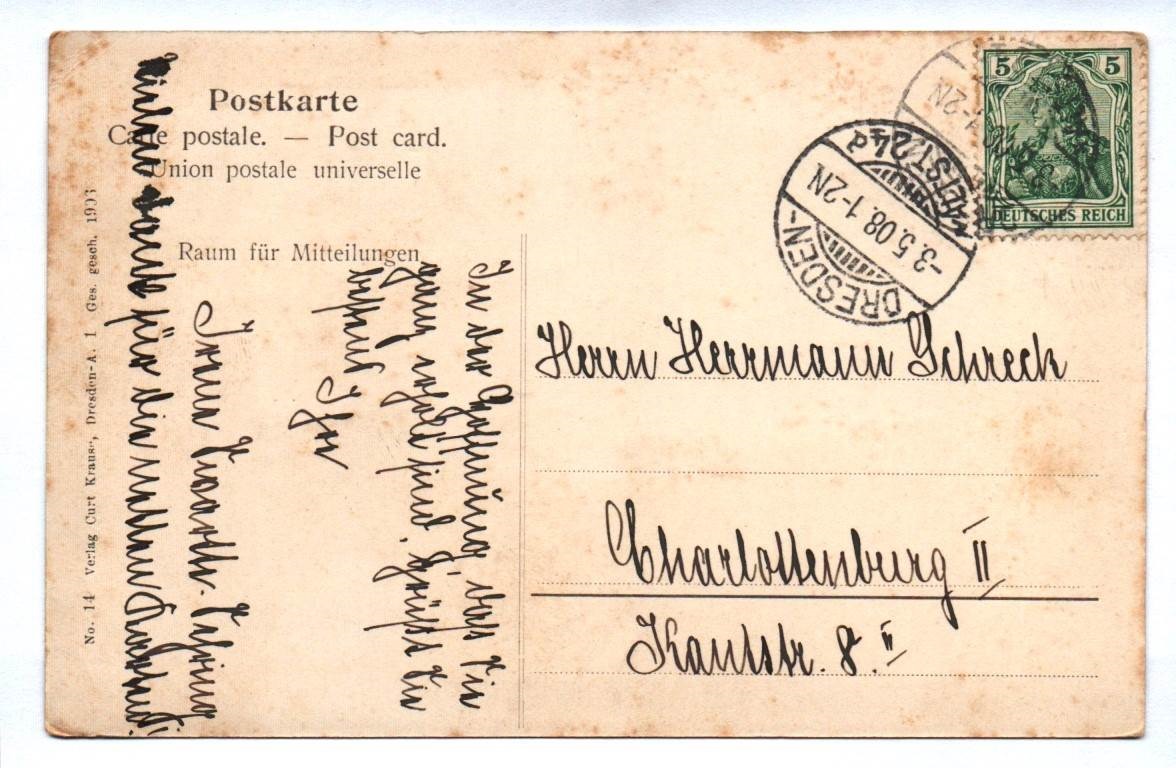 Postkarte
Carte postale. — Post card.
Union postale universelle
Raum für Mitteilungen
5 5
DEUTSCHES REICH
DRESDEN-ALTST. 24 d
-3.5.08. 1-2N
Herrn Herrmann Schreck
Charlottenburg II
Kantstr. 8. II
In der Hoffnung, dass Sie
ganz wohl sind, grüßt Sie
Ihre
vielen Dank für die
No. 14 Verlag Curt Krause, Dresden-A. 1 Ges. gesch. 1903